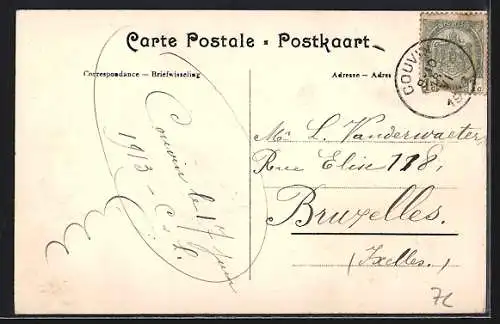 Carte Postale - Postkaart
Correspondance — Briefwisseling
Adresse — Adres
COUVIN
Couvin le 17 juin
1913 - C &
L.
Mr L. Vanderwaeter,
Rue Elise 118,
Bruxelles.
(Ixelles.)
7L